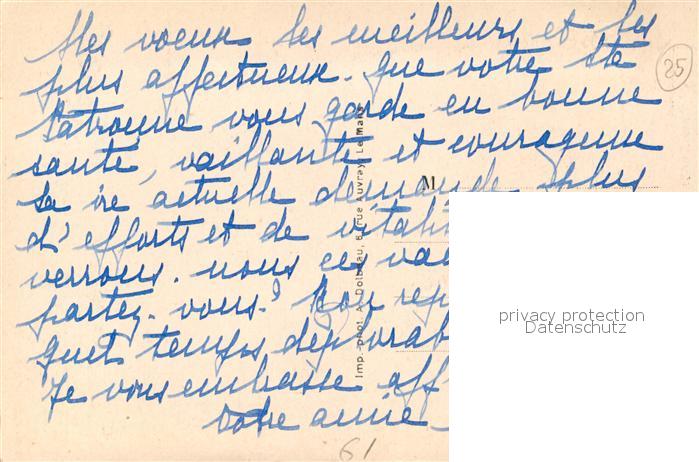 Mes voeux les meilleurs et les
plus affectueux. que votre Ste
Patronne vous garde en bonne
santé, vaillante et courageuse
La vie actuelle demande plus
d'efforts et de vitalit
verrons. nous ces vac
partez-vous? Bon rep
quel temps déplorab
Je vous embrasse aff
votre amie
25
M
Imp. phot. A. Dolbeau, 6, rue Auvray, Le Mans
privacy protection
Datenschutz
61